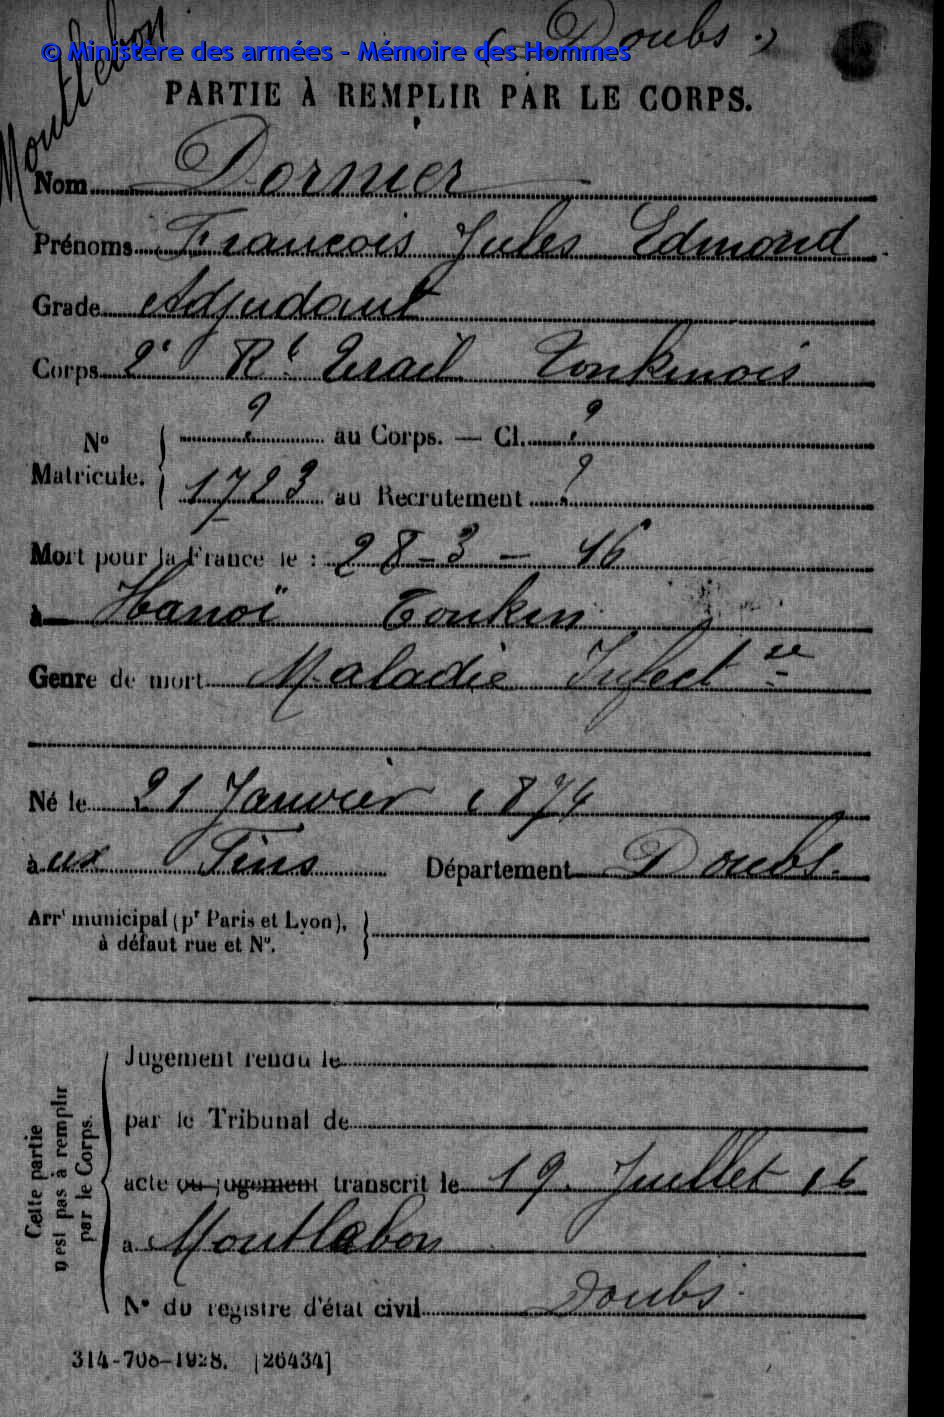 Montlebon
(Doubs.)
© Ministère des armées - Mémoire des Hommes
PARTIE À REMPLIR PAR LE CORPS.
Nom Dornier
Prénoms Francois Jules Edmond
Grade Adjudant
Corps 2e Rt Tirail Tonkinois
No Matricule. { ? au Corps. — Cl. ?
1723 au Recrutement ?
Mort pour la France le : 28-3-16
à Hanoï Tonkin
Genre de mort Maladie Infectse
Né le 21 Janvier 1874
à ux Fins Département Doubs.
Arrt municipal (pr Paris et Lyon), à défaut rue et No. }
Cette partie n'est pas à remplir par le Corps. {
Jugement rendu le
par le Tribunal de
acte ou jugement transcrit le 19. Juillet 16
à Montlebon
No du registre d'état civil Doubs.
314-708-1928. [26434]